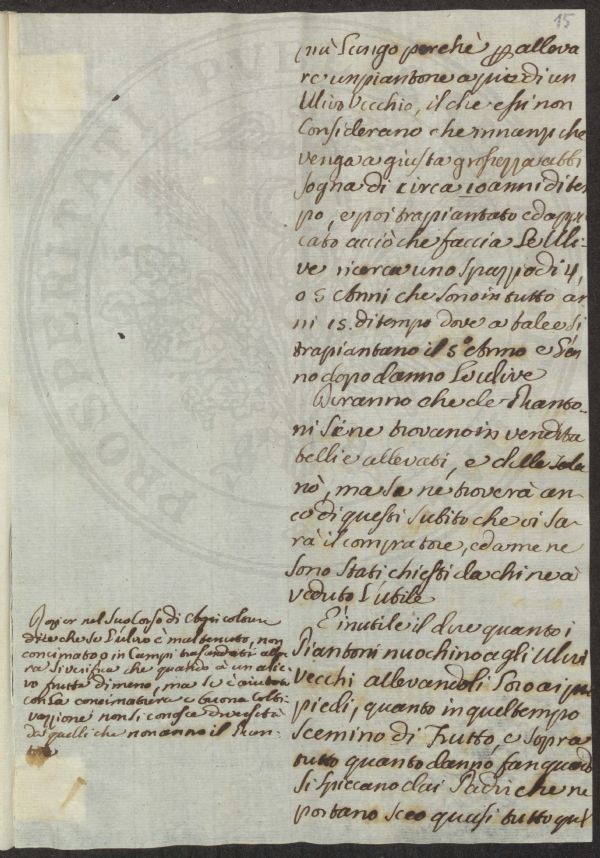 15
più Lungo perchè p alleva
re un piantone a piè di un
Ulivo Vecchio, il che essi non
Considerano che innanzi che
venga a giusta grossezza abbi
sogna di circa 10 anni di tem
po, e poi trapiantato ed appic
cato acciò che faccia Le Uli-
ve ricerca uno spazzio di 4,
o 5 Anni che sono in tutto an
ni 15. di tempo dove a tale si
trapiantano il 5° Anno e
no dopo danno Le ulive
Diranno che de Pianto-
ni Se ne trovano in vendita
belli e allevati, e delle
nò, ma Se ne troverà an-
co di questi subito che vi Sa
rà il compratore, ed a me ne
sono Stati chiesti da chi ne à
veduto L'utile
È inutile il dire quanto i
Piantoni nuochino agli Ulivi
vecchi allevandoli Loro ai
piedi, quanto in quel tempo
Scemino di Frutto, e sopra
tutto quanto danno fan quando
Si spiccano dai Padri che ne
portano seco quasi tutto quel
Rozier nel Suo Corso di Agricoltura
dice che se L'ulivo è mal tenuto, non
concimato o in Campi trasandati allo
ra Si verifica che quando à un allie
vo frutta di meno, ma se è aiutato
con La concimatura e buona Colti
vazzione non si conosce diversità
da quelli che non anno il Pian-
tone
PROSPERITATI PUBL